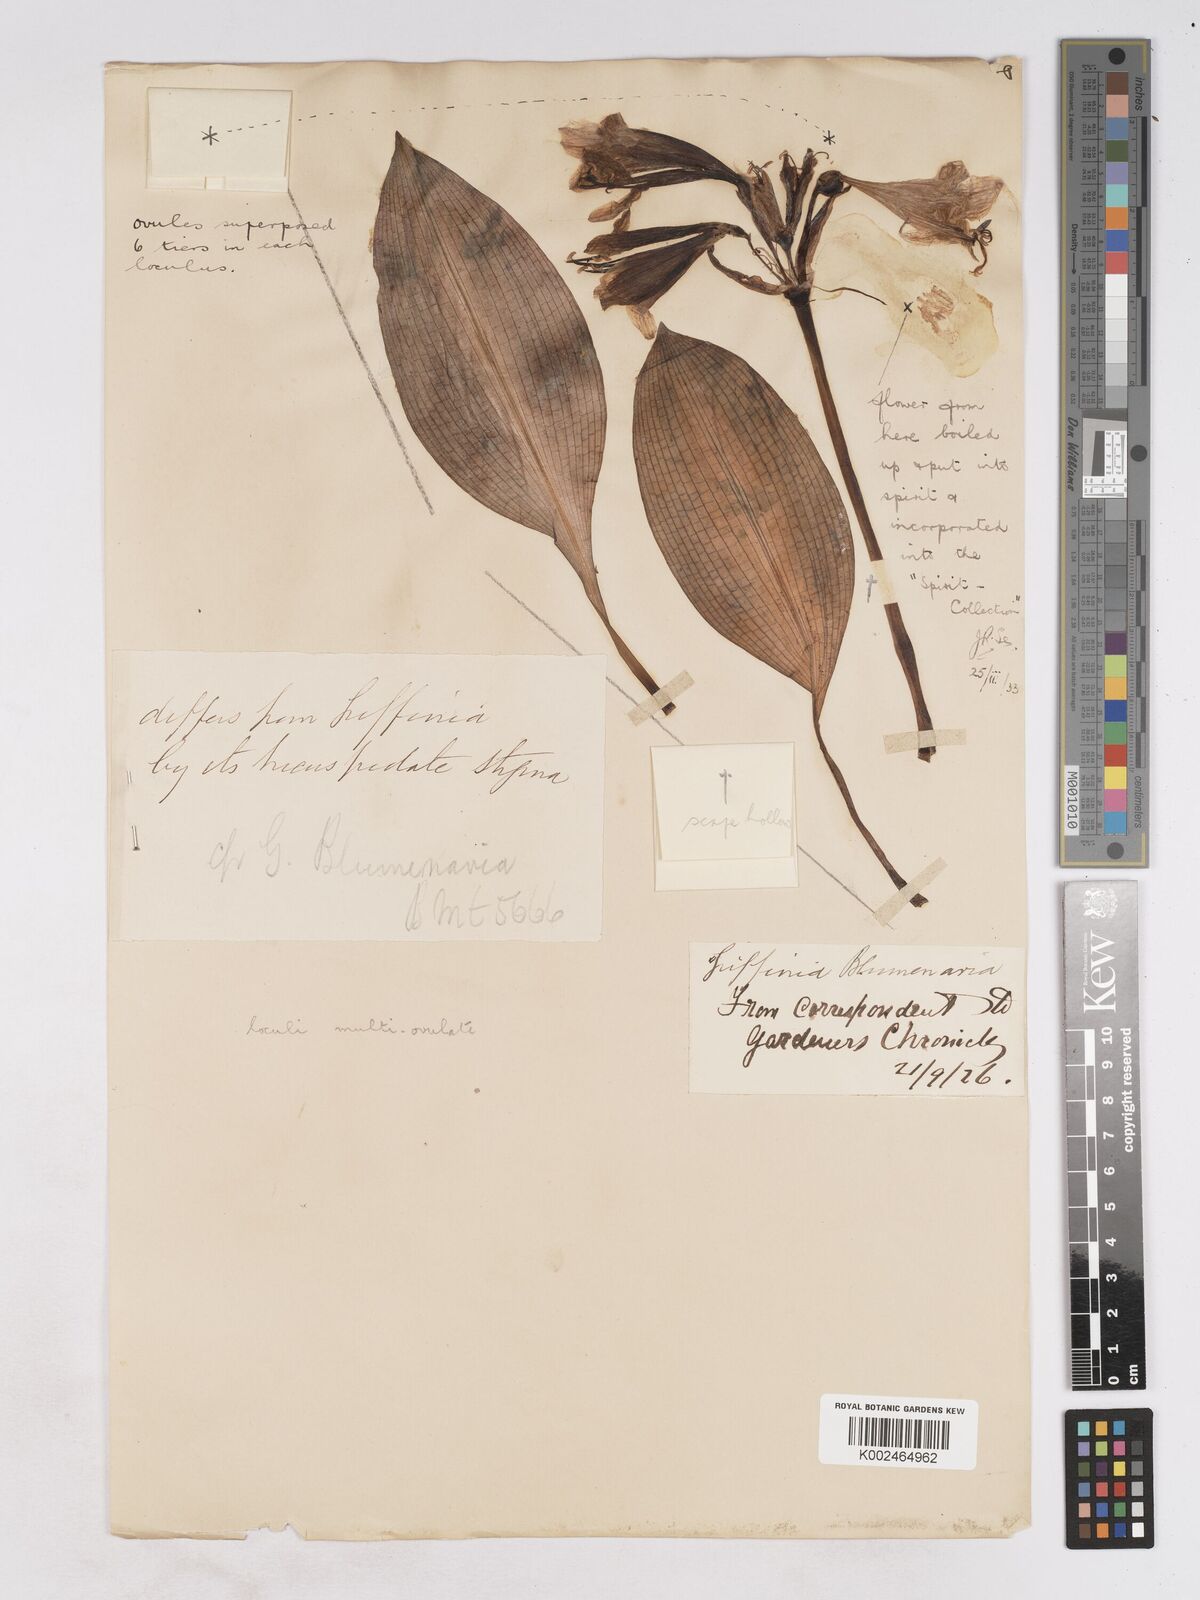 *
*
ovules superposed
6 tiers in each
loculus.
x
flower from
here boiled
up & put into
spirit &
incorporated
into the
"Spirit-
Collection"
25/ii/33
†
differs from Griffinia
by its tricuspidate stigma
cfr G. Blumenavia
B M t 5666
†
scape hollow
loculi multi-ovulate
Griffinia Blumenavia
From Correspondent
Gardeners Chronicle
21/9/26.
ROYAL BOTANIC GARDENS KEW
K002464962
inches
centimeters
Density
Don Williams
M001010
Kew
Royal Botanic Gardens
copyright reserved
10
9
8
7
6
5
4
3
2
1
0
cm